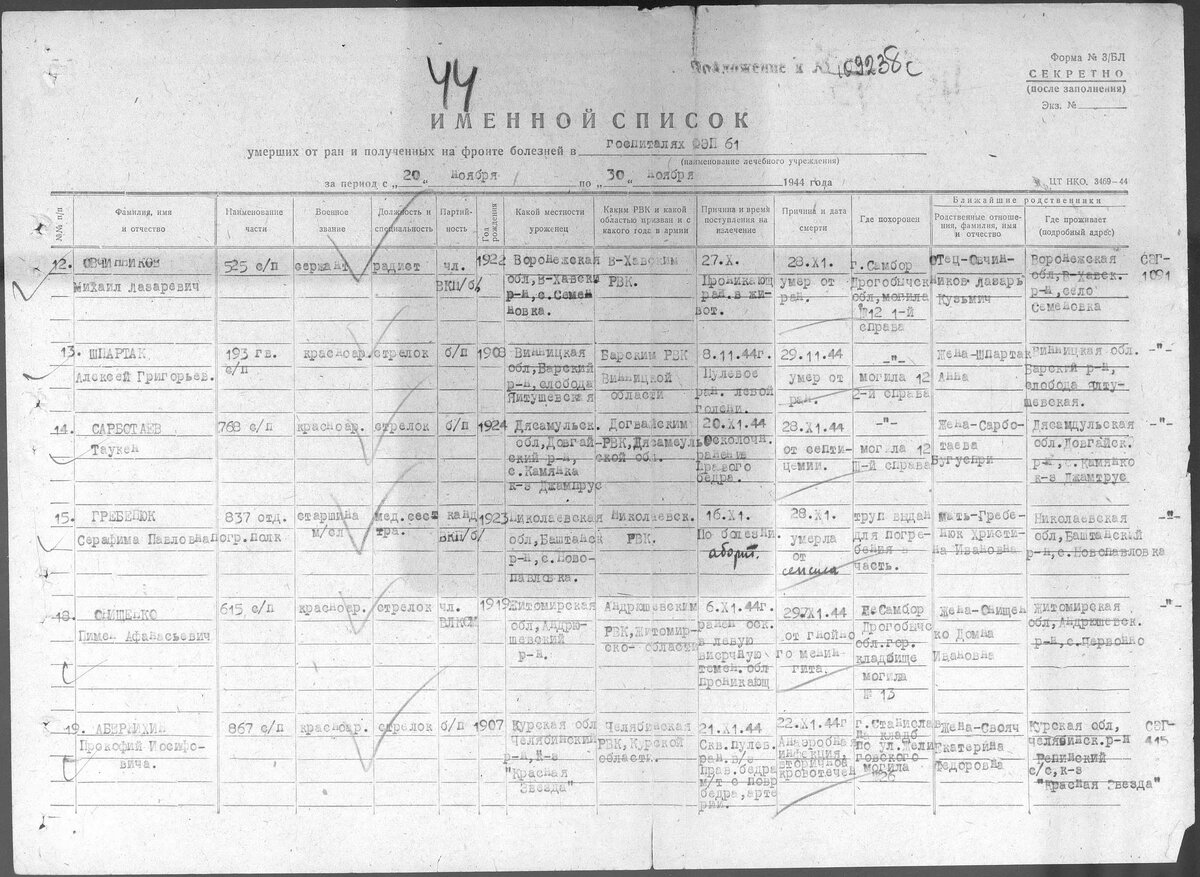 44
Приложение к 109238с
Форма № 3/БЛ
СЕКРЕТНО
(после заполнения)
Экз. №
ИМЕННОЙ СПИСОК
умерших от ран и полученных на фронте болезней в госпиталях ФЭП 61
(наименование лечебного учреждения)
за период с „20“ ноября по „30“ ноября 1944 года
ЦТ НКО. 3469—44
№№ п/п
Фамилия, имя
и отчество
Наименование
части
Военное
звание
Должность и
специальность
Партий-
ность
Год
рождения
Какой местности
уроженец
Каким РВК и какой
областью призван и с
какого года в армии
Причина и время
поступления на
излечение
Причина и дата
смерти
Где похоронен
Ближайшие родственники
Родственные отноше-
ния, фамилия, имя
и отчество
Где проживает
(подробный адрес)
12.
ОВЧИННИКОВ
Михаил Лазаревич
525 с/п
сержант
радист
чл.
ВКП/б/
1922
Воронежская
обл, В-Хавски
р-н, с. Семен
новка.
В-Хавским
РВК.
27.X.
Проникающ
ран. в жи-
вот.
28.X1.
умер от
ран.
г. Самбор
Дрогобычск
обл, могила
№12 1-й
справа
Отец-Овчин-
ников Лазарь
Кузьмич
Воронежская
обл, В-Хавск.
р-н, село
Семеновка
СЭГ-
1891
13.
ШПАРТАК
Алексей Григорьев.
193 гв.
с/п
красноар.
стрелок
б/п
1908
Винницкая
обл, Барский
р-н, слобода
Ялтушевская
Барским РВК
Винницкой
области
8.11.44г.
Пулевое
ран. левой
голени.
29.11.44
умер от
ран.
-"-
могила 12
2-й справа
Жена-Шпартак
Анна
Винницкая обл.
Барский р-н,
слобода Ялту-
шевская.
-"-
14.
САРБОТАЕВ
Таукен
768 с/п
красноар.
стрелок
б/п
1924
Дясамульск.
обл, Довгай-
ский р-н,
с. Камянка
к-з Джампрус
Догвайским
РВК, Дясамуль
ской обл.
20.X1.44
Осколочн.
ранение
правого
бедра.
28.X1.44
от септи-
цемии.
-"-
могила 12
Ш-й справа
Жена-Сарбо-
таева
Бугуспри
Дясамдульская
обл. Довгайск.
р-н, с. Камянко
к-з Джамтрус
-"-
15.
ГРЕБЕНЮК
Серафима Павловна
837 отд.
погр. полк
старшина
м/сл
мед. сест
тра.
канд
ВКП/б/
1923
Николаевская
обл, Баштанск
р-н, с. Ново-
павловка.
Николаевск.
РВК.
16.X1.
По болезни
аборт.
28.X1.
умерла
от
сепсиса
труп выдан
для погре-
бения в
часть.
Мать-Гребе-
нюк Христи-
на Ивановна
Николаевская
обл, Баштанский
р-н, с. Новопавловка
-"-
18.
ОНИЩЕНКО
Пимен Афанасьевич
615 с/п
красноар.
стрелок
чл.
ВЛКСМ
1919
Житомирская
обл, Андрю-
шевский
р-н.
Андрюшевским
РВК, Житомир-
ско- области
6.X1.44г.
ранен оск.
в левую
височную
темен. обл
проникающ
29.X1.44
от гнойно
го менин-
гита.
г. Самбор
Дрогобычс
обл. гор.
кладбище
могила
№ 13
Жена-Онищен
ко Домна
Ивановна
Житомирская
обл, Андрюшевск.
р-н, с. Червонко
-"-
19.
АБЕРЯХИН
Прокофий Иосифо-
вича.
867 с/п
красноар.
стрелок
б/п
1907
Курская обл
Челябинский
р-н, к-з
"Красная
Звезда"
Челябинская
РВК, Курской
области.
21.X1.44
Скв. пулев.
ран. в/з
прав. бедра
м/т с повр
бедра, арте
рии.
22.X1.44г
Анаэробная
инфекция,
вторичное
кровотечен
г. Станислав
на кладб
по ул. Жели
говского
могила
№26
Жена-Свояч
Екатерина
Федоровна
Курская обл,
Челябинск. р-н
Репинский
с/с, к-з
"Красная Звезда"
СЭГ-
415